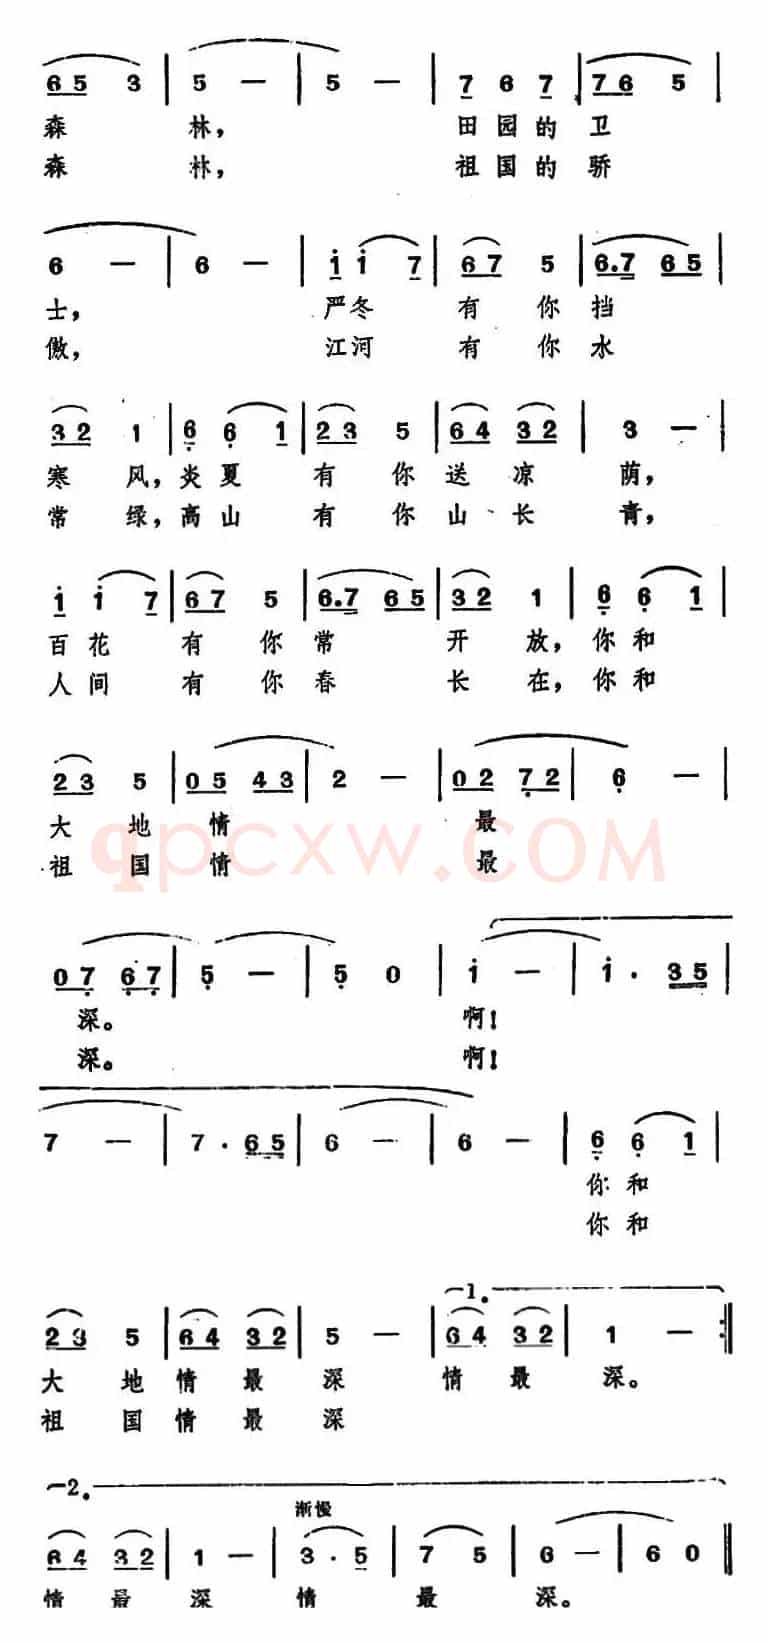 6 5 3 | 5 — | 5 — | 7 6 7 | 7 6 5 |
森 林， 田 园 的 卫
森 林， 祖 国 的 骄
6 — | 6 — | 1 1 7 | 6 7 5 | 6.7 6 5 |
士， 严 冬 有 你 挡
傲， 江 河 有 你 水
3 2 1 | 6 6 1 | 2 3 5 | 6 4 3 2 | 3 — |
寒 风，炎 夏 有 你 送 凉 荫，
常 绿，高 山 有 你 山 长 青，
1 1 7 | 6 7 5 | 6.7 6 5 | 3 2 1 | 6 6 1 |
百 花 有 你 常 开 放，你 和
人 间 有 你 春 长 在，你 和
2 3 5 | 0 5 4 3 | 2 — | 0 2 7 2 | 6 — |
大 地 情 最
祖 国 情 最
qpcxw.COM
0 7 6 7 | 5 — | 5 0 | 1 — | 1 . 3 5 |
深。 啊！
深。 啊！
7 — | 7 . 6 5 | 6 — | 6 — | 6 6 1 |
你 和
你 和
1.
2 3 5 | 6 4 3 2 | 5 — | 6 4 3 2 | 1 — :||
大 地 情 最 深 情 最 深。
祖 国 情 最 深
2.
渐慢
6 4 3 2 | 1 — | 3 . 5 | 7 5 | 6 — | 6 0 ||
情 最 深 情 最 深。